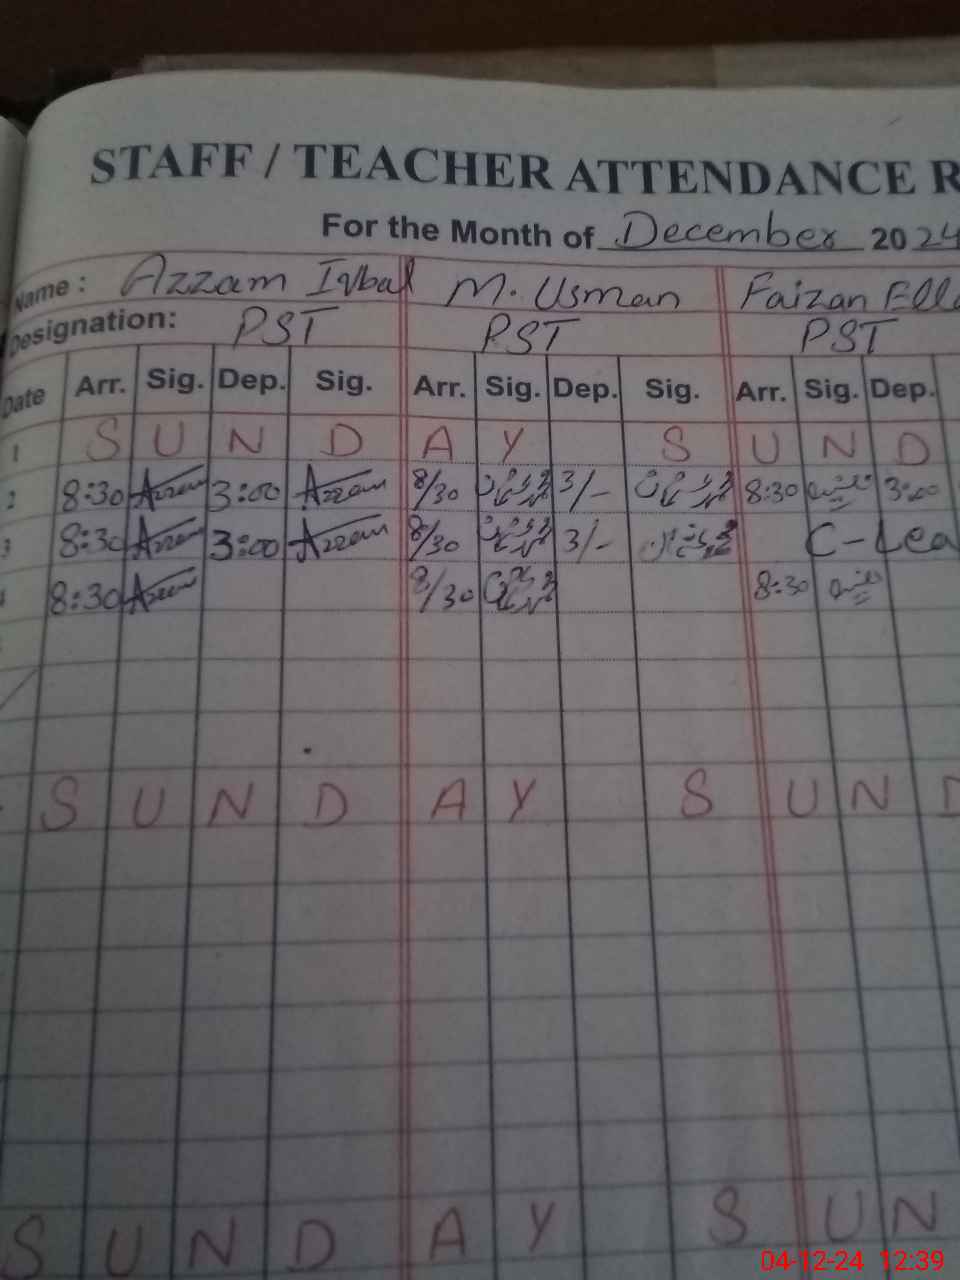 STAFF / TEACHER ATTENDANCE R
For the Month of December 2024
Name : Azzam Iqbal M. Usman Faizan Ella
Designation: PST PST PST
Date Arr. Sig. Dep. Sig. Arr. Sig. Dep. Sig. Arr. Sig. Dep.
1 S U N D A Y S U N D
2 8:30 Azzam 3:00 Azzam 8/30 3/- 8:30 3:00
3 8:30 Azzam 3:00 Azzam 8/30 3/- C-Lea
8:30 Azzam 8/30 8:30
S U N D A Y S U N D
S U N D A Y S U N
04-12-24 12:39